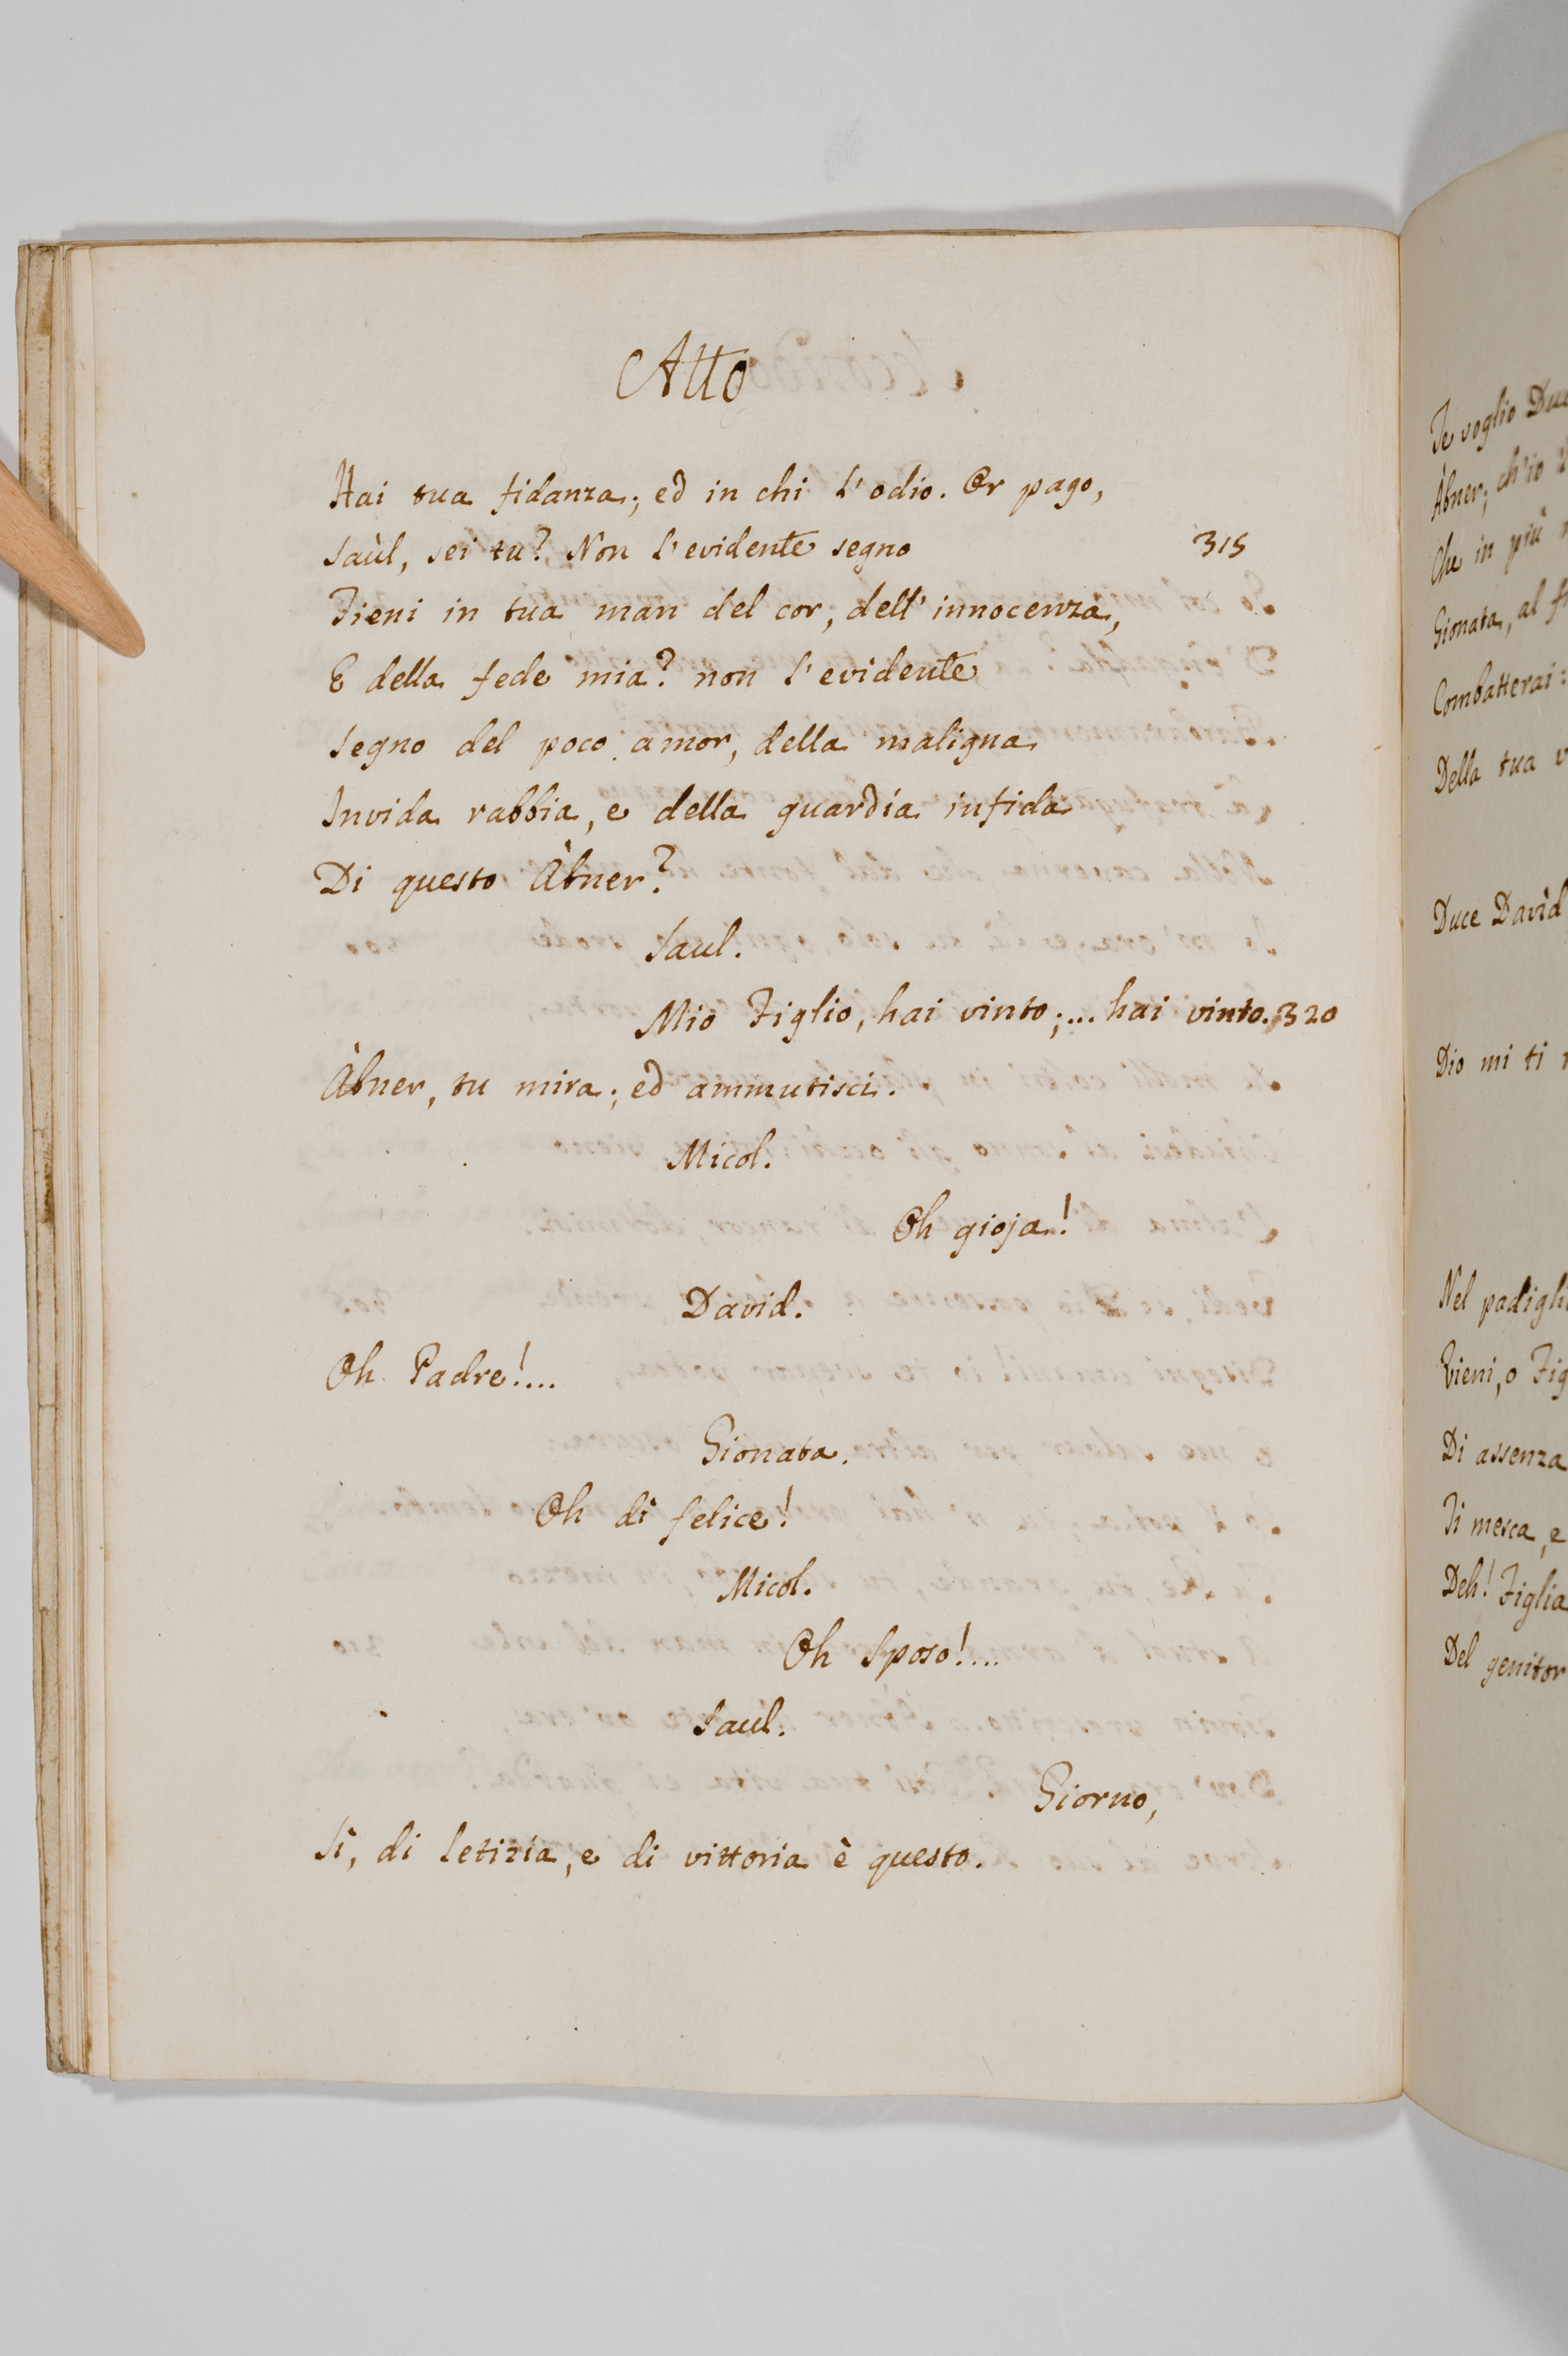 Atto
Hai tua fidanza; ed in chi l'odio. Or pago,
Saùl, sei tu? Non l'evidente segno 315
Tieni in tua man del cor, dell'innocenza,
E della fede mia? non l'evidente
Segno del poco amor, della maligna
Invida rabbia, e della guardia infida
Di questo Àbner?
Saul.
Mio Figlio, hai vinto;... hai vinto. 320
Àbner, tu mira; ed ammutisci.
Micol.
Oh gioja!
David.
Oh Padre!...
Gionata.
Oh dì felice!
Micol.
Oh Sposo!...
Saul.
Giorno,
Sì, di letizia, e di vittoria è questo.
Te voglio
Àbner; ch'io
Che in più
Gionata, al
Combatterai:
Della tua
Duce Davìd
Dio mi ti
Nel
Vieni, o
Di assenza
Ti mesca, e
Deh! Figlia
Del genitor